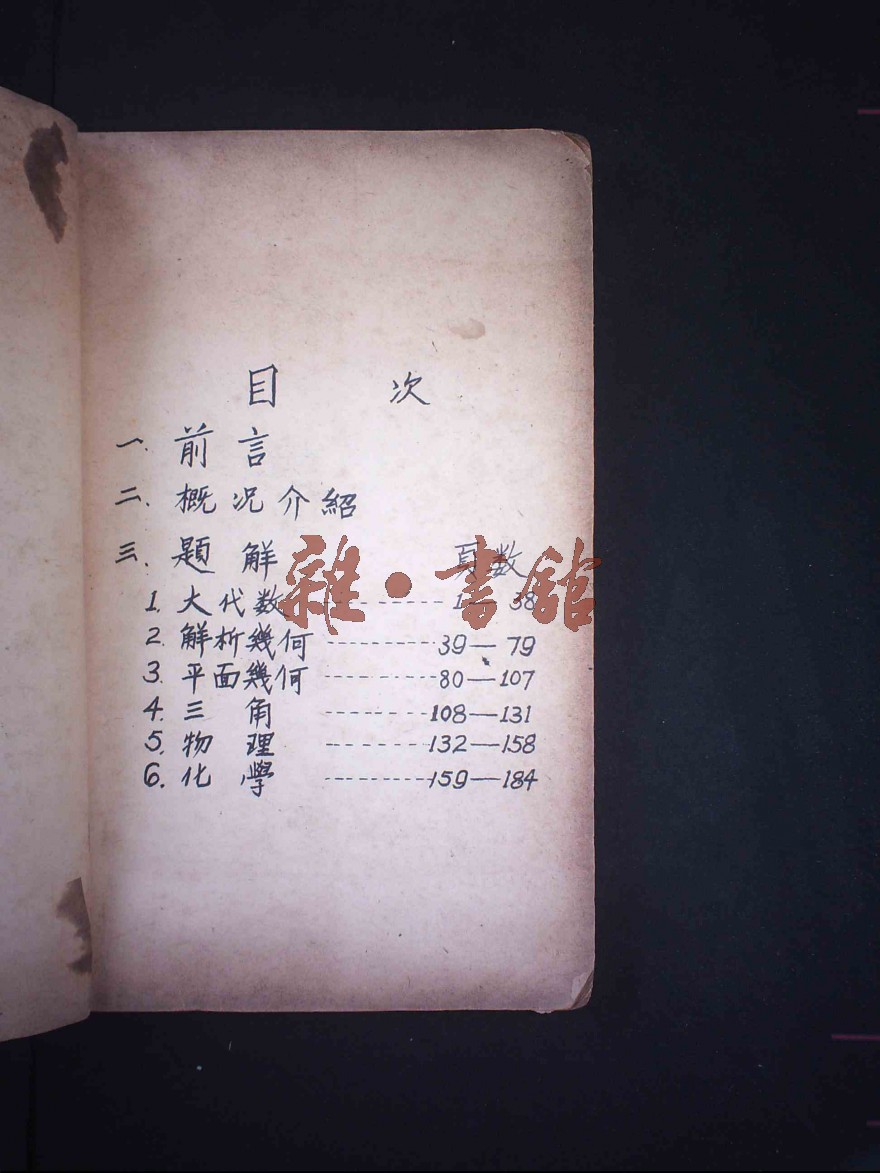 目 次
一. 前言
二. 概况介紹
三. 題解 頁数
1. 大代数 ---------- 1—38
2. 解析幾何 ---------- 39—79
3. 平面幾何 ---------- 80—107
4. 三角 ---------- 108—131
5. 物理 ---------- 132—158
6. 化學 ---------- 159—184
雜·書館